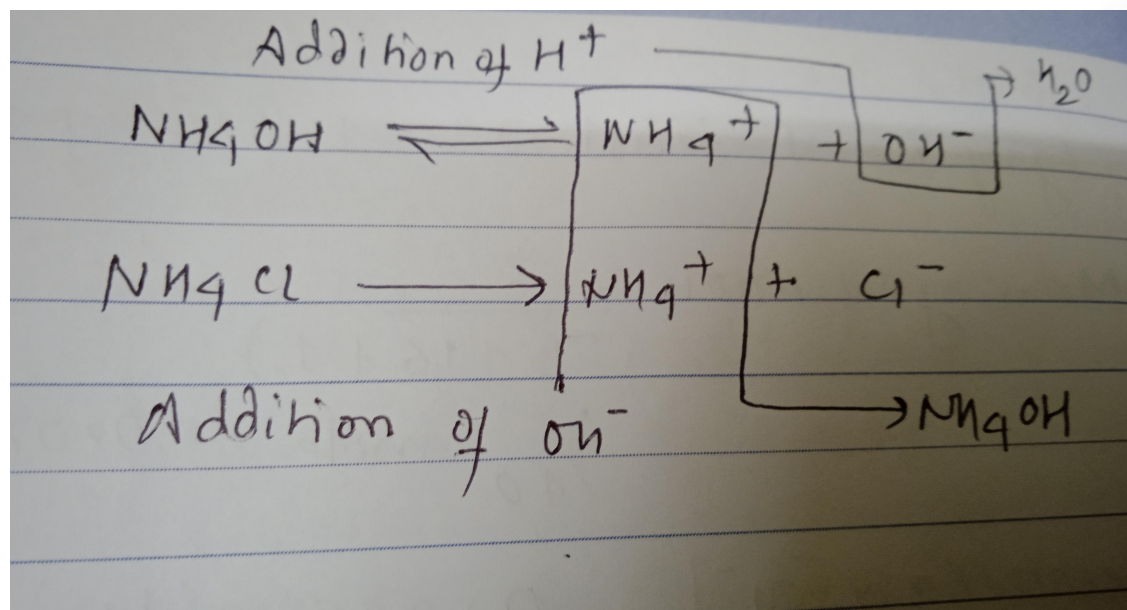 Addition of H⁺
→ H₂O
NH₄OH ⇌ NH₄⁺ + OH⁻
NH₄Cl → NH₄⁺ + Cl⁻
Addition of OH⁻ → NH₄OH